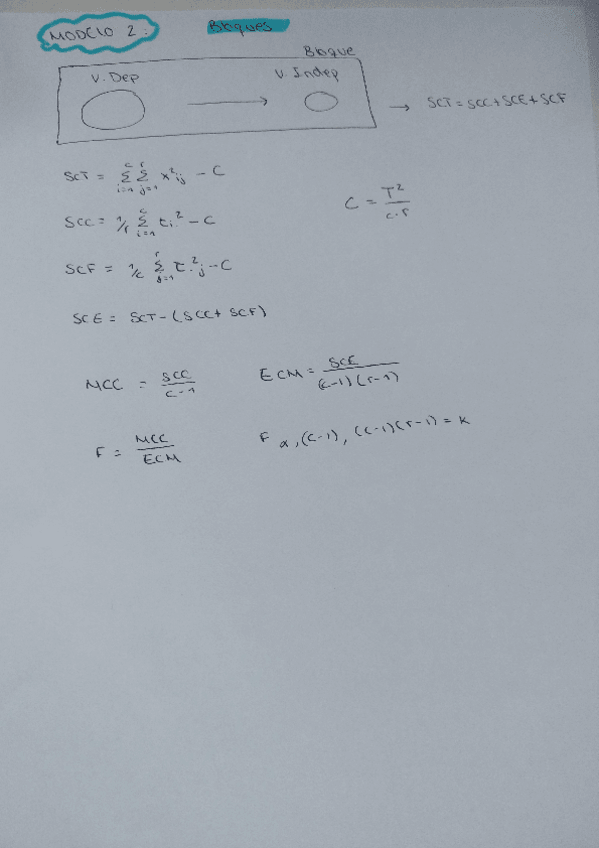 MODELO 2: Bloques
Bloque
V. Dep → V. Indep
→ SCT = SCC + SCE + SCF
SCT = Σ(i=1, c) Σ(j=1, r) x²ij - C
C = T² / c·r
SCC = 1/r Σ(i=1, c) ti.² - C
SCF = 1/c Σ(j=1, r) t.²j - C
SCE = SCT - (SCC + SCF)
MCC = SCC / c-1
ECM = SCE / (c-1)(r-1)
F = MCC / ECM
F α, (c-1), (c-1)(r-1) = K